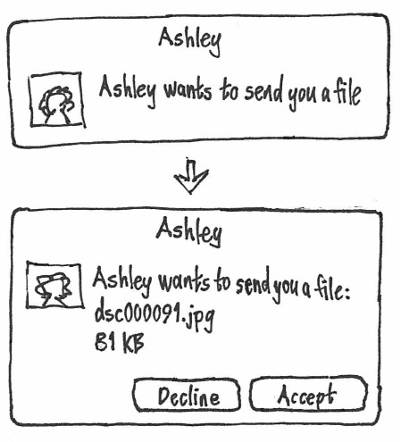 Ashley
Ashley wants to send you a file
Ashley
Ashley wants to send you a file:
dsc000091.jpg
81 KB
Decline
Accept